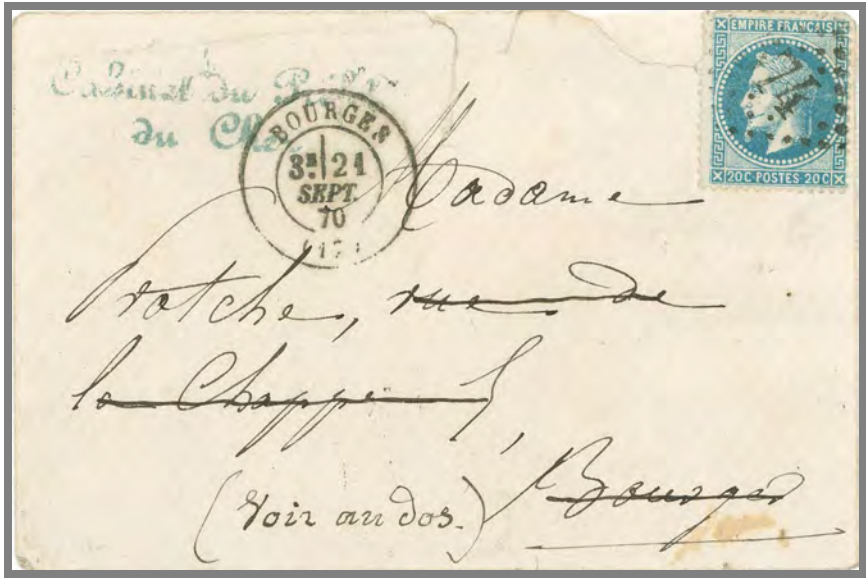 Cabinet du Préfet
du Cher
BOURGES
3E 21
SEPT.
70
(17)
EMPIRE FRANÇAIS
74
20C POSTES 20C
Madame
Protche, rue de
la Chappe 5,
Bourges
(Voir au dos.)